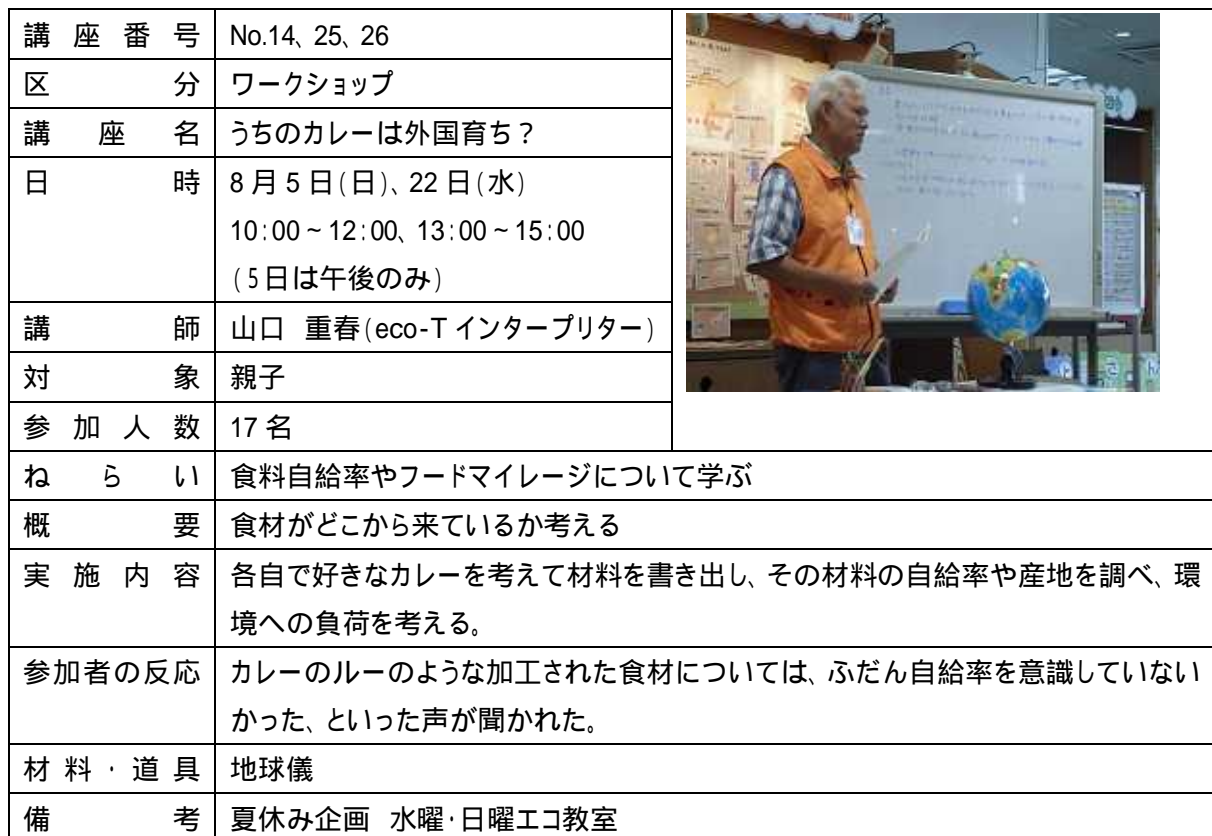 講座番号 No.14、25、26
区分 ワークショップ
講座名 うちのカレーは外国育ち？
日時 8月5日(日)、22日(水)
10:00～12:00、13:00～15:00
(5日は午後のみ)
講師 山口 重春(eco-Tインタープリター)
対象 親子
参加人数 17名
ねらい 食料自給率やフードマイレージについて学ぶ
概要 食材がどこから来ているか考える
実施内容 各自で好きなカレーを考えて材料を書き出し、その材料の自給率や産地を調べ、環
境への負荷を考える。
参加者の反応 カレーのルーのような加工された食材については、ふだん自給率を意識していない
かった、といった声が聞かれた。
材料・道具 地球儀
備考 夏休み企画 水曜・日曜エコ教室